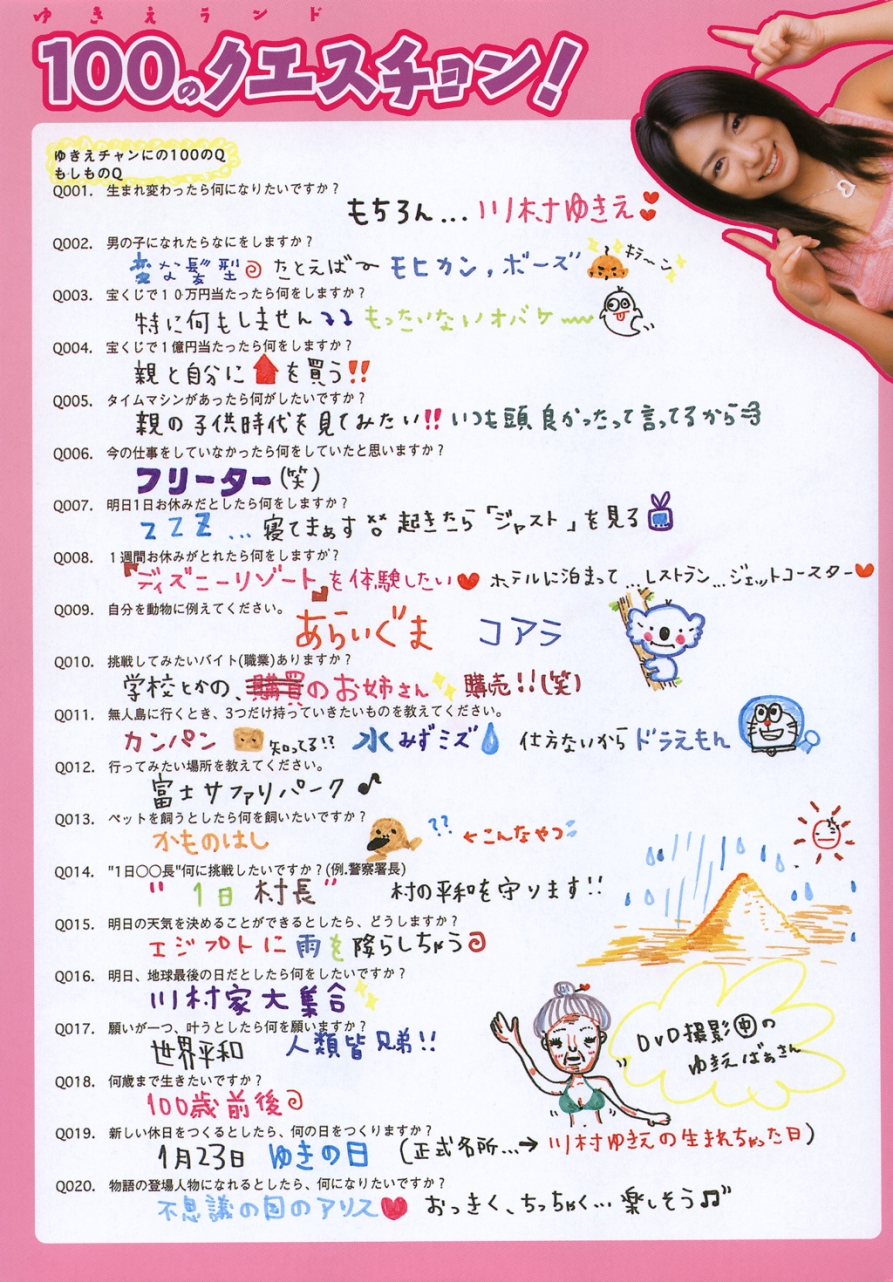 ゆきえランド
100のクエスチョン!
ゆきえチャンにの100のQ
もしものQ
Q001. 生まれ変わったら何になりたいですか?
もちろん...川村ゆきえ
Q002. 男の子になれたらなにをしますか?
変な髪型 たとえば〜 モヒカン,ボーズ キラーン
Q003. 宝くじで10万円当たったら何をしますか?
特に何もしません もったいないオバケ
Q004. 宝くじで1億円当たったら何をしますか?
親と自分に を買う!!
Q005. タイムマシンがあったら何がしたいですか?
親の子供時代を見てみたい!! いつも頭良かったって言ってるから
Q006. 今の仕事をしていなかったら何をしていたと思いますか?
フリーター(笑)
Q007. 明日1日お休みだとしたら何をしますか?
ZZZ... 寝てまぁす 起きたら「ジャスト」を見る
Q008. 1週間お休みがとれたら何をしますか?
『ディズニーリゾート』を体験したい ホテルに泊まって...レストラン...ジェットコースター
Q009. 自分を動物に例えてください。
あらいぐま コアラ
Q010. 挑戦してみたいバイト(職業)ありますか?
学校とかの、購買のお姉さん 購売!!(笑)
Q011. 無人島に行くとき、3つだけ持っていきたいものを教えてください。
カンパン 知ってる!? 水みずミズ 仕方ないからドラえもん
Q012. 行ってみたい場所を教えてください。
富士サファリパーク♪
Q013. ペットを飼うとしたら何を飼いたいですか?
かものはし ?? ←こんなやつ
Q014. "1日〇〇長"何に挑戦したいですか?(例.警察署長)
"1日 村長" 村の平和を守ります!!
Q015. 明日の天気を決めることができるとしたら、どうしますか?
エジプトに雨を降らしちゃう
Q016. 明日、地球最後の日だとしたら何をしたいですか?
川村家大集合
Q017. 願いが一つ、叶うとしたら何を願いますか?
世界平和 人類皆兄弟!!
DVD撮影中の
ゆきえばぁさん
Q018. 何歳まで生きたいですか?
100歳前後
Q019. 新しい休日をつくるとしたら、何の日をつくりますか?
1月23日 ゆきの日 (正式名所...→川村ゆきえの生まれちゃった日)
Q020. 物語の登場人物になれるとしたら、何になりたいですか?
不思議の国のアリス おっきく、ちっちゃく...楽しそう♫